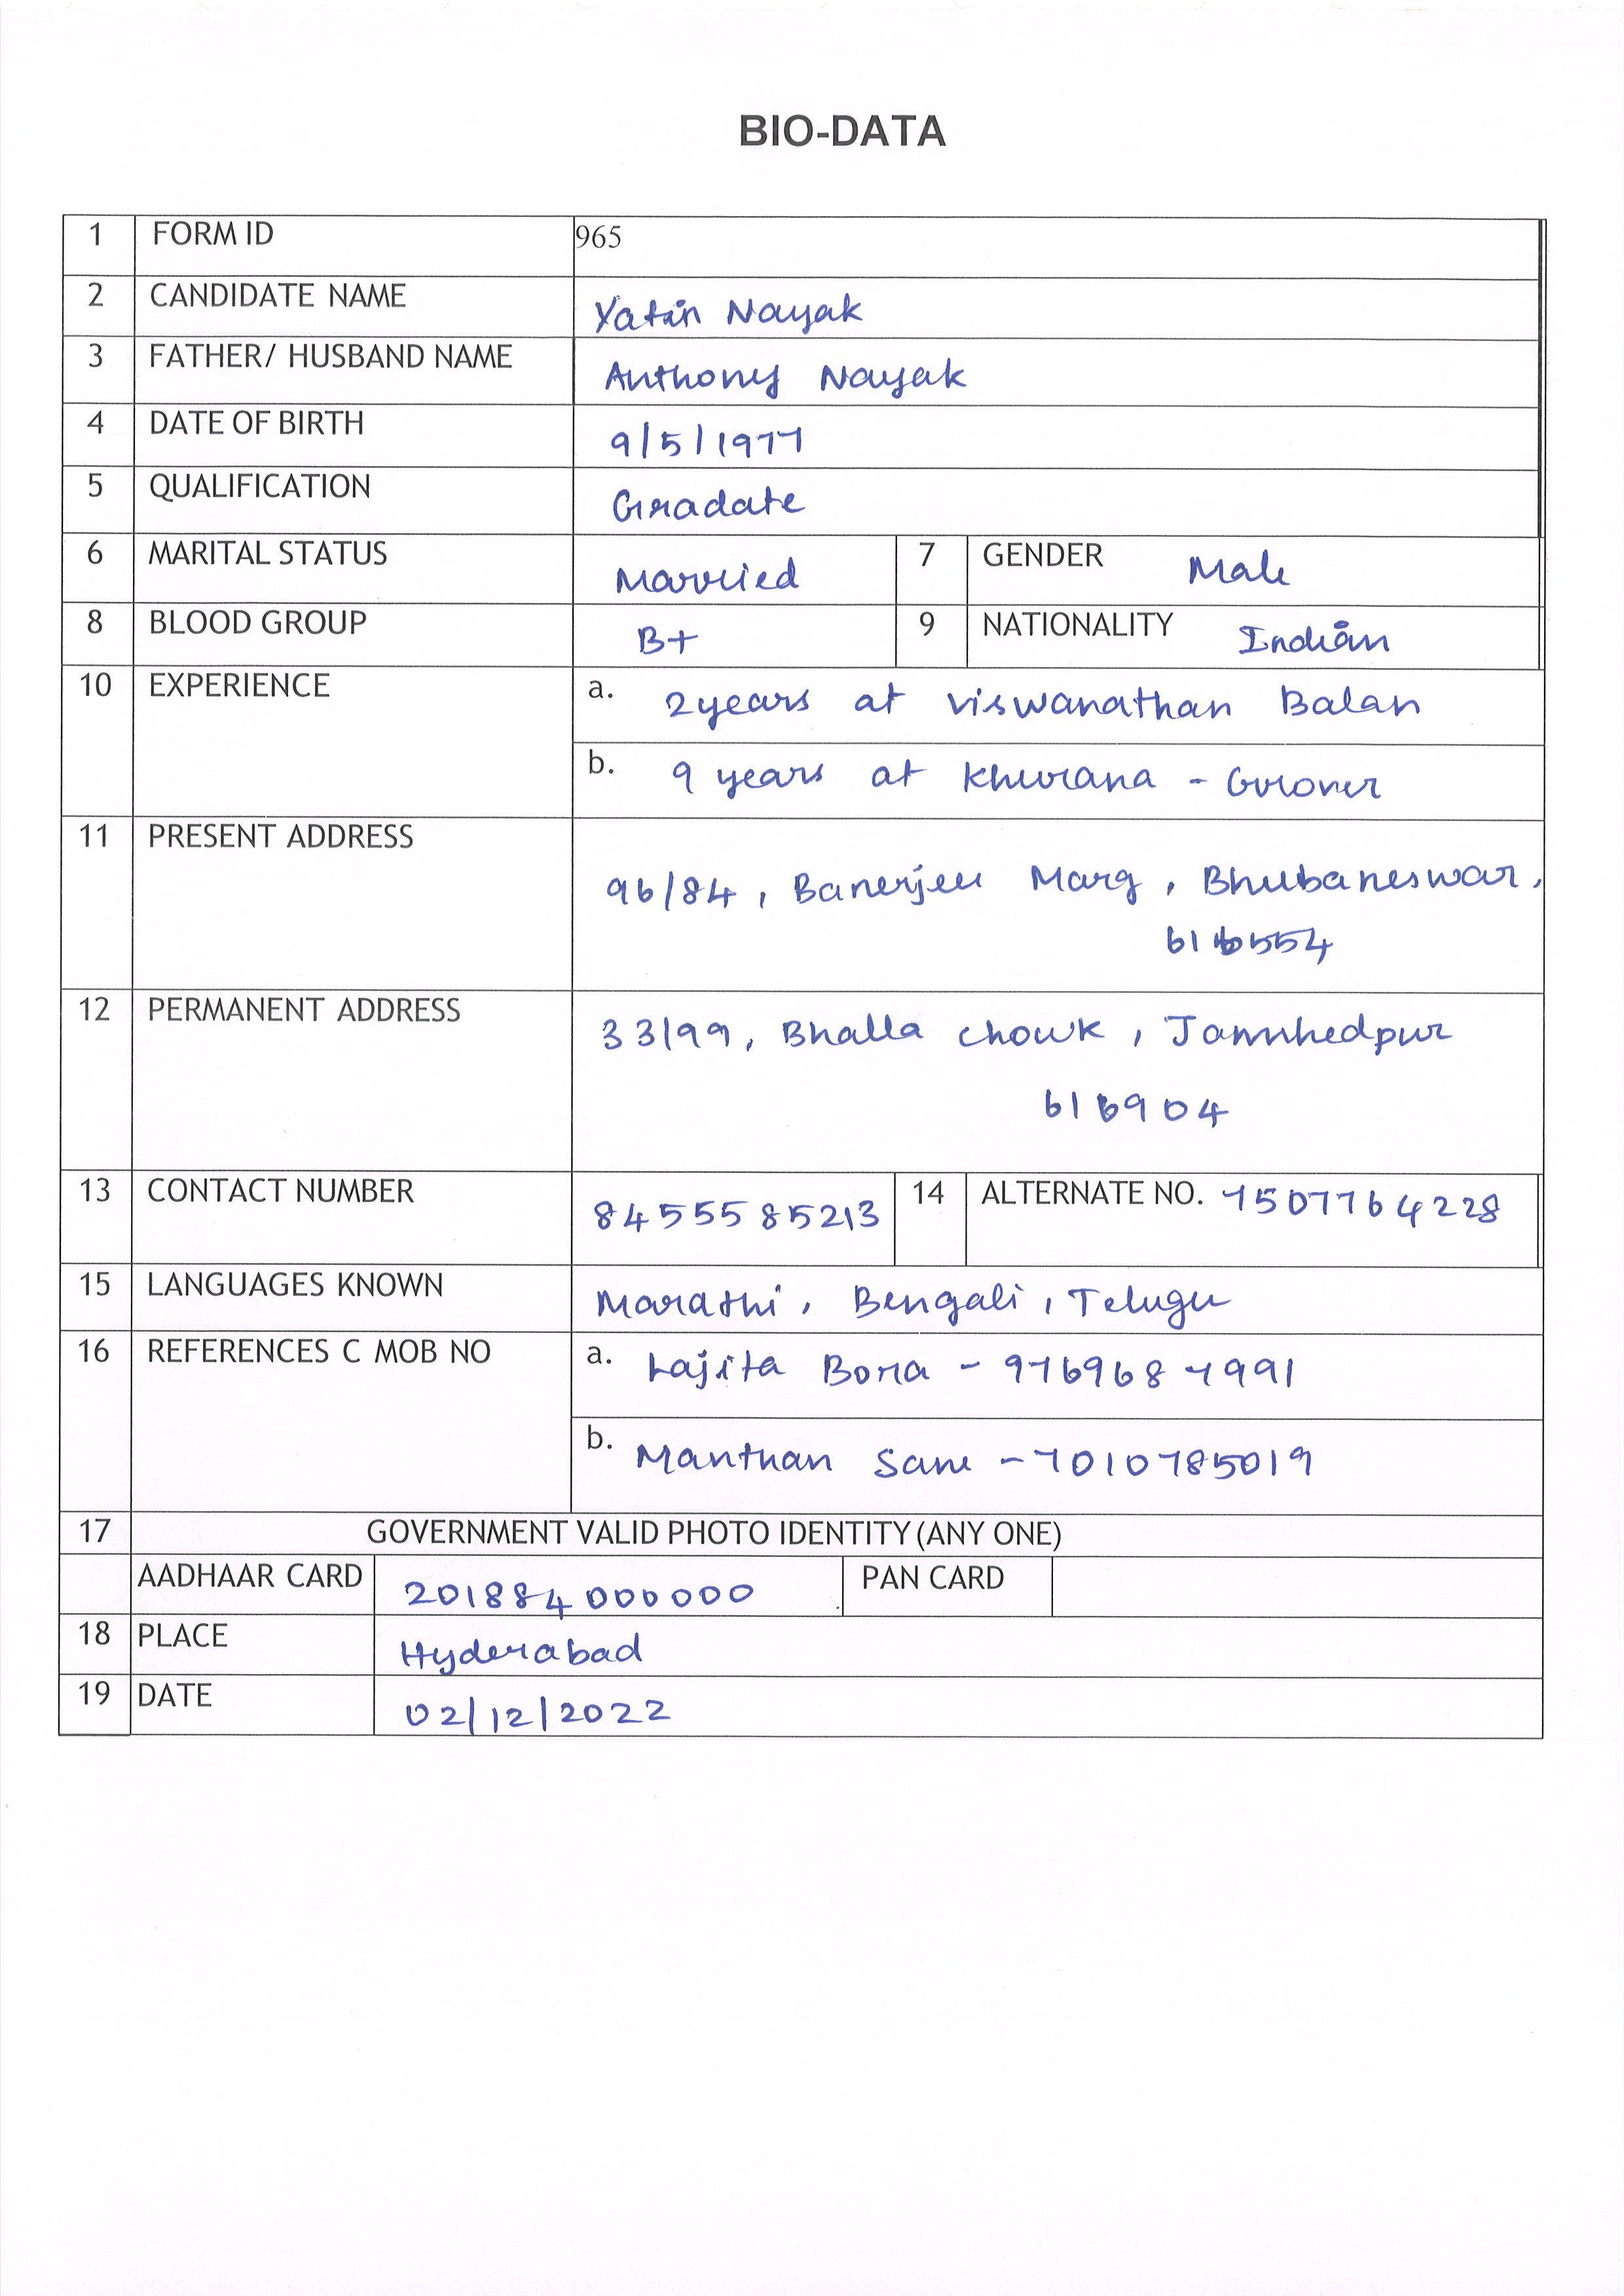 BIO-DATA
1 FORM ID 965
2 CANDIDATE NAME Yatin Nayak
3 FATHER/ HUSBAND NAME Anthony Nayak
4 DATE OF BIRTH 9/5/1977
5 QUALIFICATION Graduate
6 MARITAL STATUS Married 7 GENDER Male
8 BLOOD GROUP B+ 9 NATIONALITY Indian
10 EXPERIENCE a. 2years at Viswanathan Balan
b. 9 years at Khurana - Grover
11 PRESENT ADDRESS
96/84, Banerjee Marg, Bhubaneswar,
616554
12 PERMANENT ADDRESS 33/99, Bhalla Chowk, Jamshedpur
616904
13 CONTACT NUMBER 8455585213 14 ALTERNATE NO. 7507764228
15 LANGUAGES KNOWN Marathi, Bengali, Telugu
16 REFERENCES C MOB NO a. Lajita Bora - 9769687991
b. Manthan Sane - 7010785019
17 GOVERNMENT VALID PHOTO IDENTITY (ANY ONE)
AADHAAR CARD 201884000000 PAN CARD
18 PLACE Hyderabad
19 DATE 02/12/2022